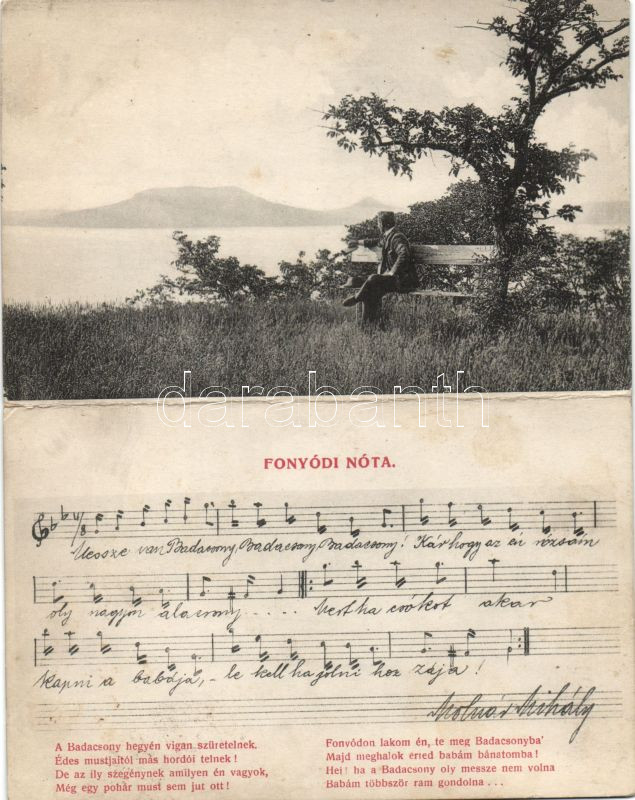 darabanth
FONYÓDI NÓTA.
Messze van Badacsony, Badacsony, Badacsony! Kár hogy az én rózsám
oly nagyon alacsony..... Mert ha csókot akar
kapni a babája, - le kell hajolni hoz zája!
Molnár Mihály
A Badacsony hegyén vigan szüretelnek.
Édes mustjaitól más hordói telnek!
De az ily szegénynek amilyen én vagyok,
Még egy pohár must sem jut ott!
Fonyódon lakom én, te meg Badacsonyba'
Majd meghalok érted babám bánatomba!
Hei! ha a Badacsony oly messze nem volna
Babám többször rám gondolna...